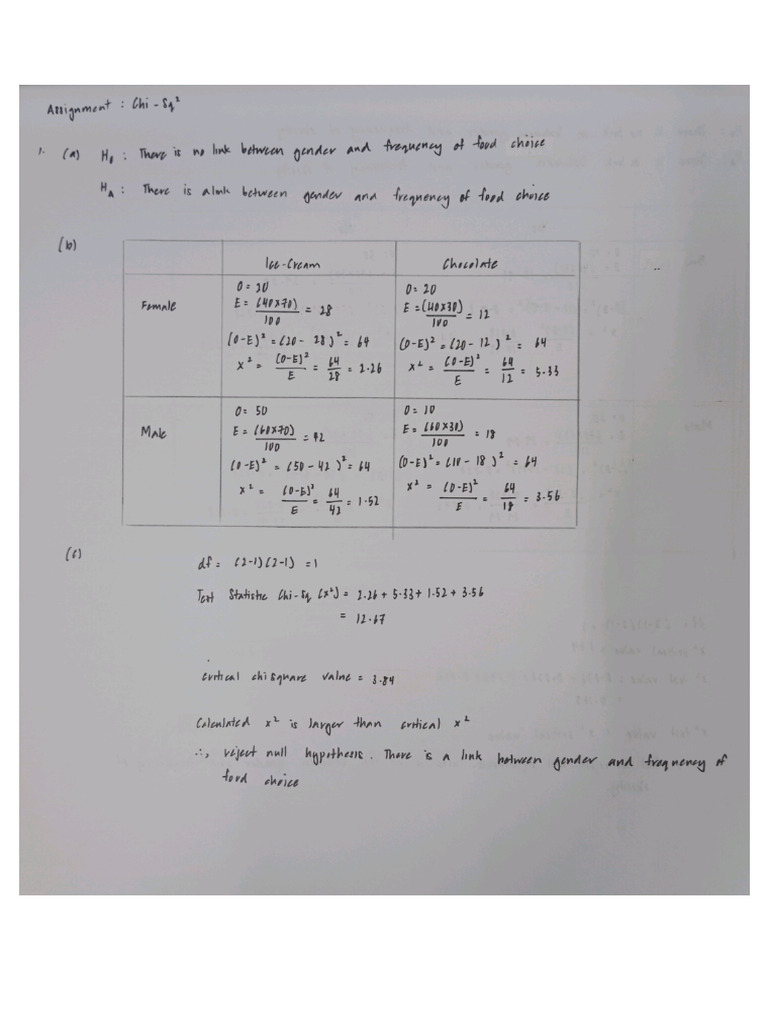 Assignment : Chi - Sq²
1. (a) H₀ : There is no link between gender and frequency of food choice
H_A : There is a link between gender and frequency of food choice
(b)
Ice-Cream Chocolate
Female
O = 20
E = (40×70)/100 = 28
(O-E)² = (20 - 28)² = 64
x² = (O-E)²/E = 64/28 = 2.26
O = 20
E = (40×30)/100 = 12
(O-E)² = (20 - 12)² = 64
x² = (O-E)²/E = 64/12 = 5.33
Male
O = 50
E = (60×70)/100 = 42
(O-E)² = (50 - 42)² = 64
x² = (O-E)²/E = 64/42 = 1.52
O = 10
E = (60×30)/100 = 18
(O-E)² = (10 - 18)² = 64
x² = (O-E)²/E = 64/18 = 3.56
(c)
df = (2-1)(2-1) = 1
Test Statistic Chi-Sq (x²) = 2.26 + 5.33 + 1.52 + 3.56
= 12.67
critical chi square value = 3.84
Calculated x² is larger than critical x²
∴, reject null hypothesis. There is a link between gender and frequency of
food choice